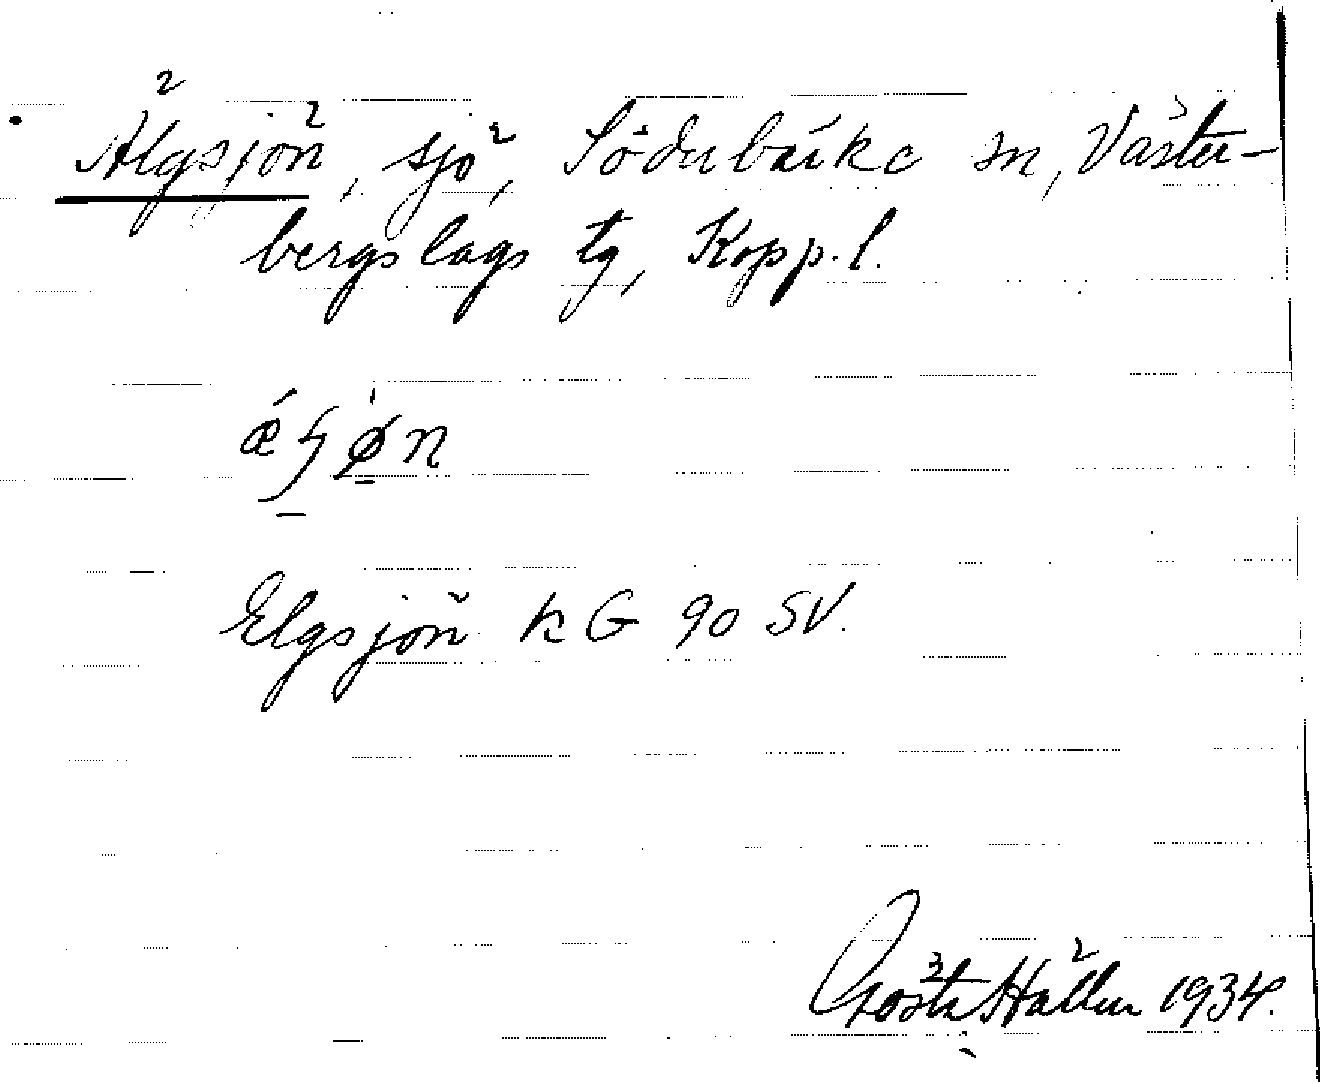 Älgsjön, sjö, Söderbärke sn, Väster-
bergslags tg, Kopp. l.
Elgsjön KG 90 SV.
Gösta Hallén 1934.